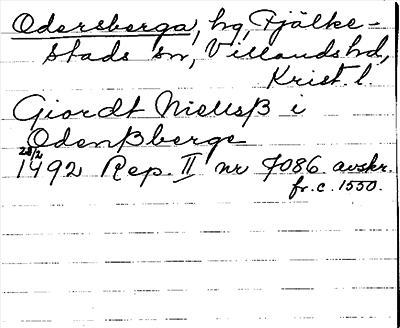 Odersberga, hg, Fjälke-
stads sn, Villands hd,
Krist. l.
Giordt Niellsß i
Odenßberge
28/2
1492 Rep. II nr 7086 avskr.
fr. c. 1550.